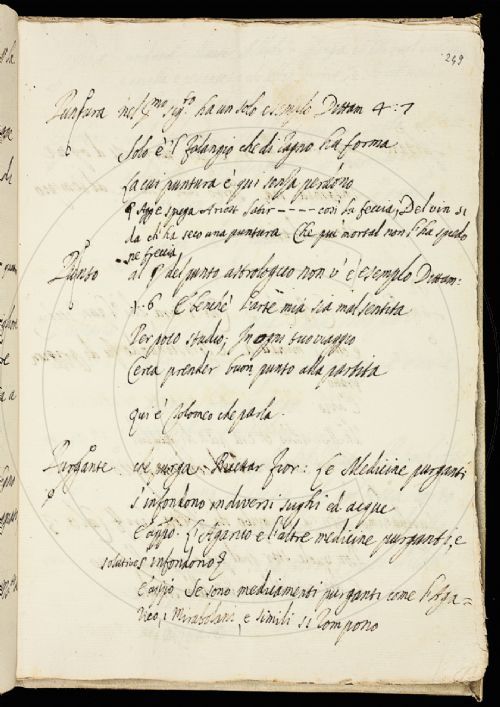 249
Puntura nel pmo sigto ha un solo esemplo Dittam 4. 7
Solo è il falangio che di ragno ha forma
La cui puntura è qui sensa perdono
Agge spega Ariost Satir ---- così la feccia, Del vin si
da chi ha seco una puntura Che pur mortal non l'ha spedo
ne freccia
Punto al pº del punto astrologico non v' è esemplo Dittam:
1. 6 E benche l'arte mia sia mal sentita
Per poco studio, In ogni suo viaggio
Cerca prender buon punto alla partita
qui è Tolomeo che parla.
Purgante che purga. Ricettar Fior: Le Medicine purganti
s'infondono in diversi sughi ed acque
E appo. L'Agarico e l'altre medicine purganti, e
solutive s'infondono
E appo Se sono medicamenti purganti come l'Aga=
rico, Mirabolani, e simili si compono